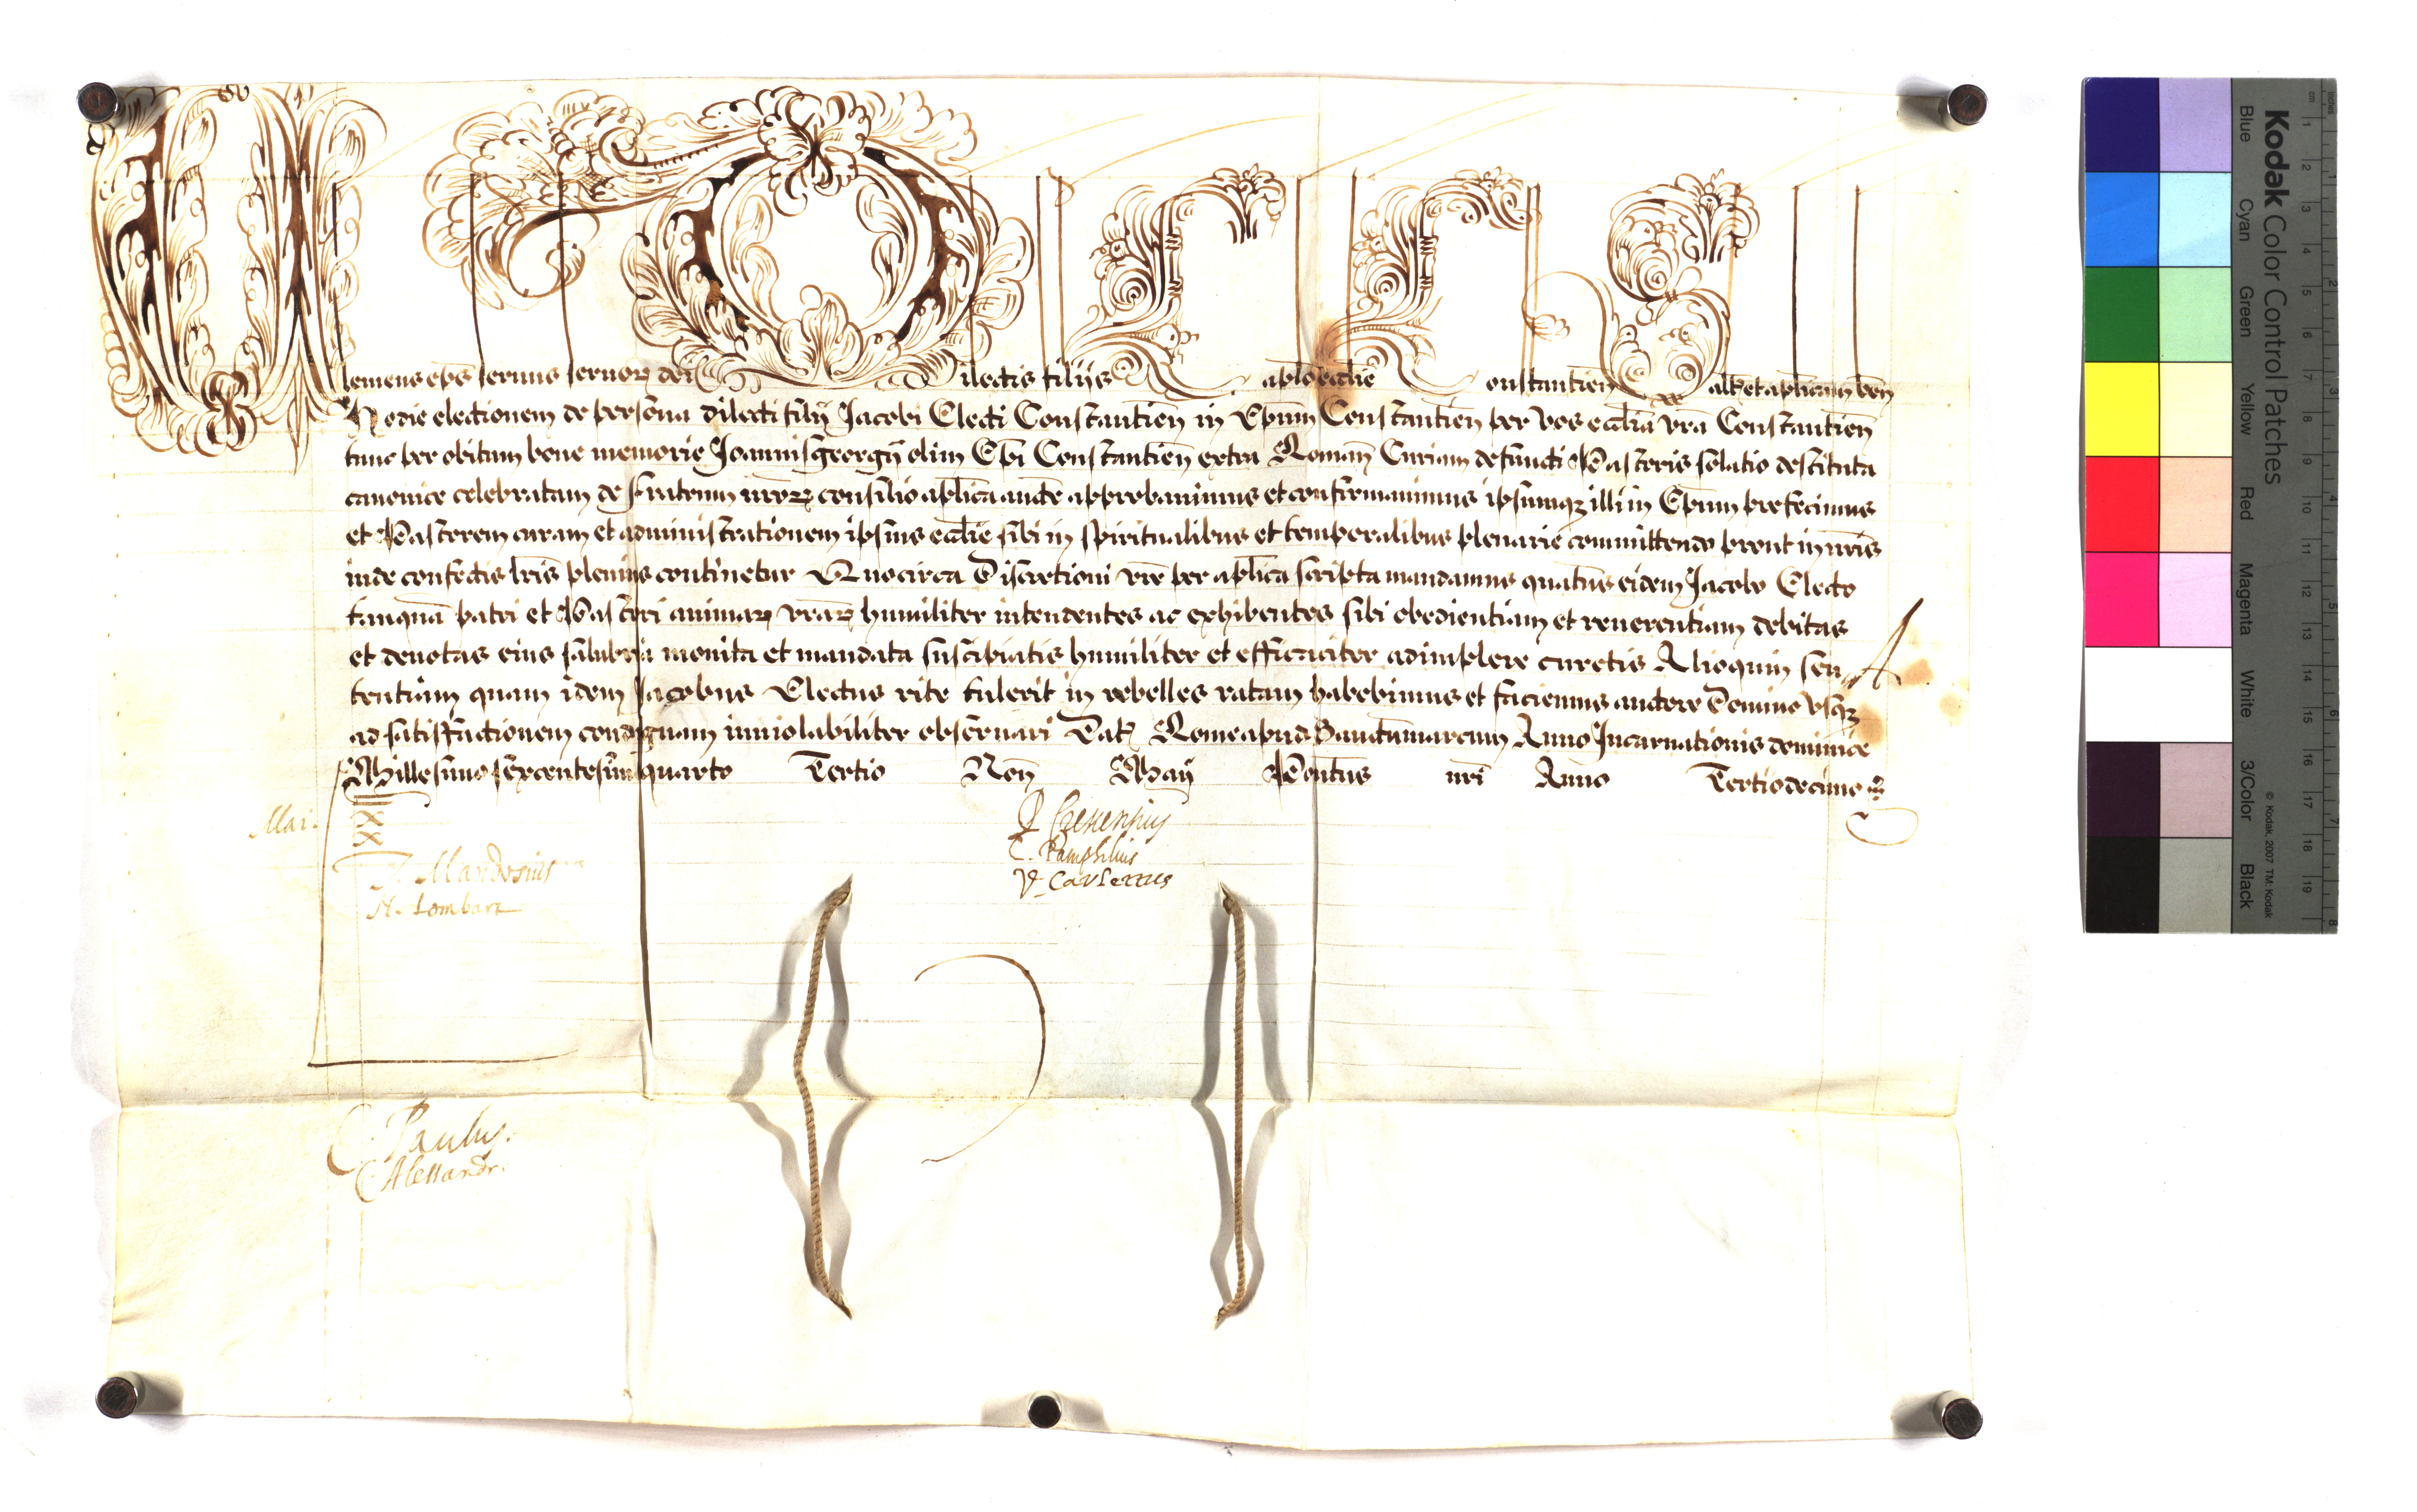 Clemens eps seruus seruoꝝ dei Dilectis filijs Caplo eccliē Constantien̄ saltē et aplicam ben̄
Hodie electionem de persona dilecti filij Jacobi Electi Constantien̄ in Epum̄ Constantien̄ per vos ecclia vr̄a Constantien̄
tunc per obitum bone memorie Joannisgeorgij olim Epī Constantien̄ extra Roman̄ Curiam defuncti Pastoris solatio destituta
canonice celebratam de fratrum nroꝝ consilio aplica aucte approbauimus et confirmauimus ipsumqꝫ illi in Epum̄ prefecimus
et Pastorem curam et administrationem ipsius ecclie sibi in spiritualibus et temporalibus plenarie committendo prout in nr̄is
inde confectis lr̄is plenius continetur Quocirca Discretioni vr̄e per aplica scripta mandamus quatus eidem Jacobo Electo
tanquā patri et Pastori animaꝝ vraꝝ humiliter intendentes ac exhibentes sibi obedientiam et reuerentiam debitas
et deuotas eius salubria monita et mandata suscipiatis humiliter et efficaciter adimplere curetis Alioquin sen
tentiam quam idem Jacobus Electus rite tulerit in rebelles ratam habebimus et faciemus auctore Domino vsqꝫ
ad satisfactionem condignam inuiolabiliter obseruari Dat̄ Rome apud Sanctummarcum Anno Incarnationis dominice
Millesimo sexcentesimo quarto Tertio Non̄ Maij Pontus nr̄i Anno Tertiodecimo
Mai.
XX
A
P Crescentius
C. Pamphilius
V. Carlettus
H. Mandosius
N. Lombart
C. Paulus.
C. Alessandr.
Kodak Color Control Patches
© Kodak, 2007 TM: Kodak
Blue
Cyan
Green
Yellow
Red
Magenta
White
3/Color
Black
cm 1 2 3 4 5 6 7 8 9 10 11 12 13 14 15 16 17 18 19
inches 1 2 3 4 5 6 7 8